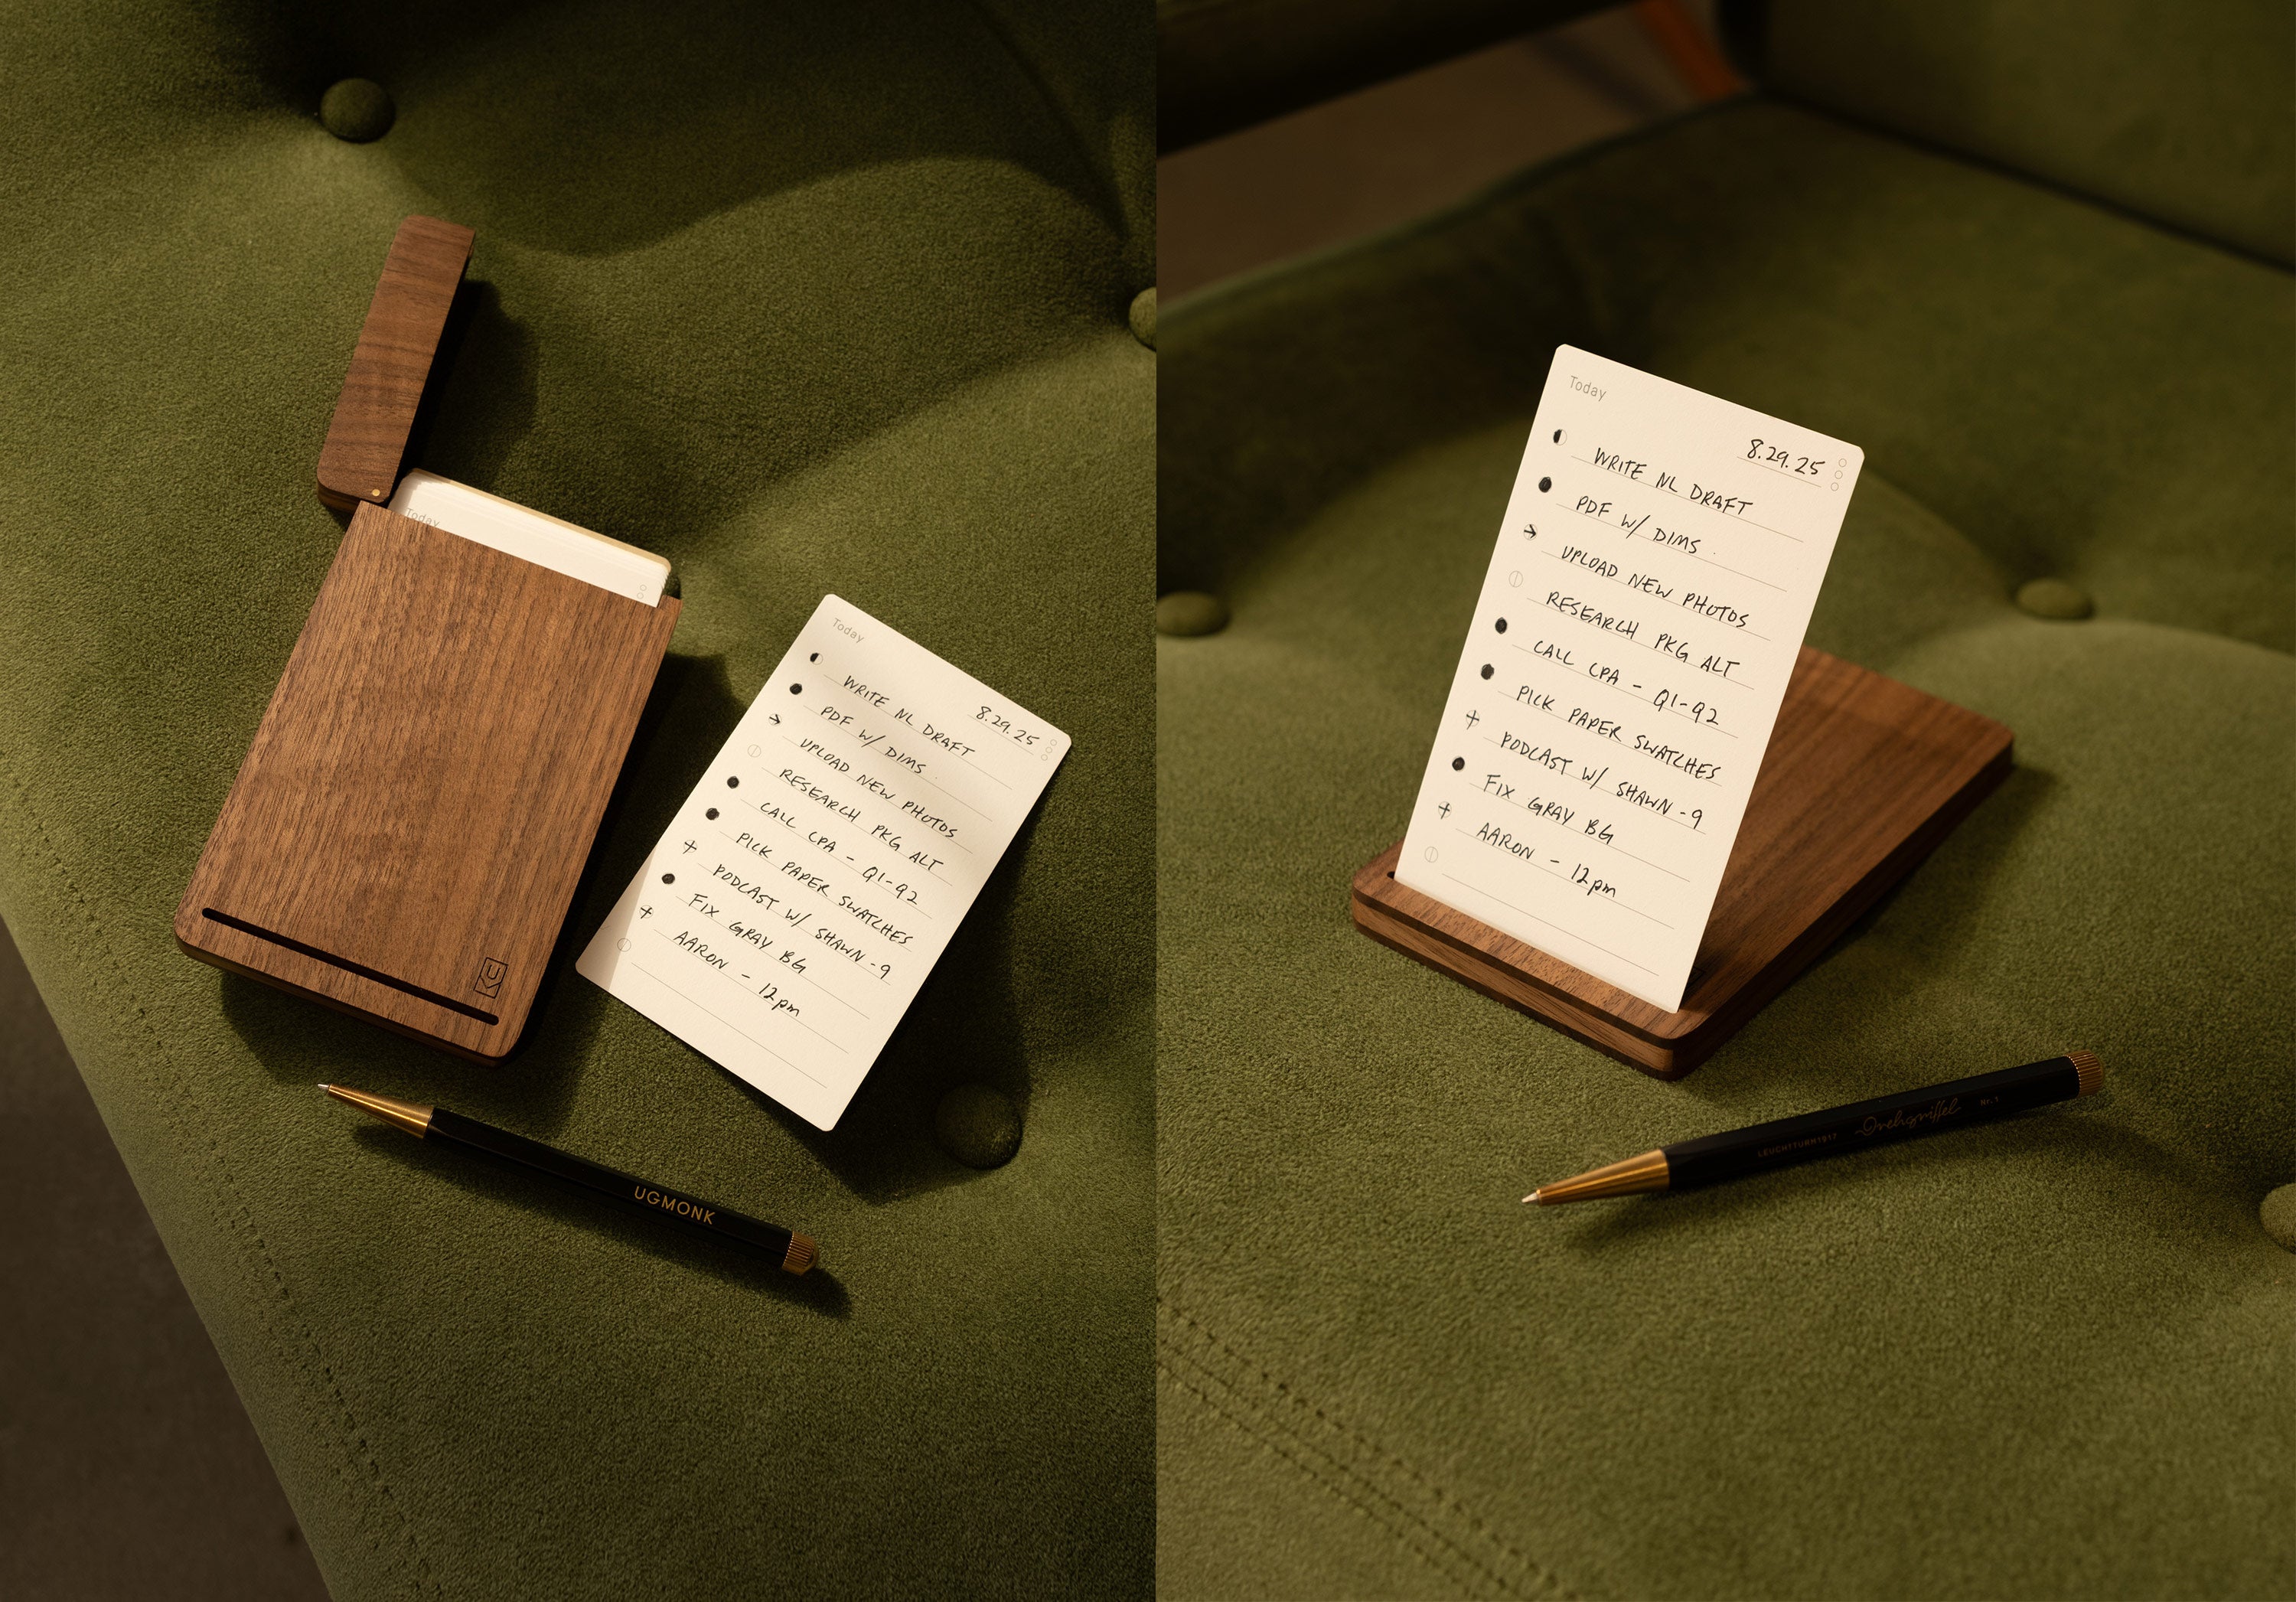 Today
Today
8.29.25
WRITE NL DRAFT
PDF W/ DIMS
UPLOAD NEW PHOTOS
RESEARCH PKG ALT
CALL CPA - Q1-Q2
PICK PAPER SWATCHES
PODCAST W/ SHAWN -9
FIX GRAY BG
AARON - 12pm
UGMONK
Today
8.29.25
WRITE NL DRAFT
PDF W/ DIMS
UPLOAD NEW PHOTOS
RESEARCH PKG ALT
CALL CPA - Q1-Q2
PICK PAPER SWATCHES
PODCAST W/ SHAWN -9
FIX GRAY BG
AARON - 12pm
LEUCHTTURM1917 Drehgriffel Nr.1